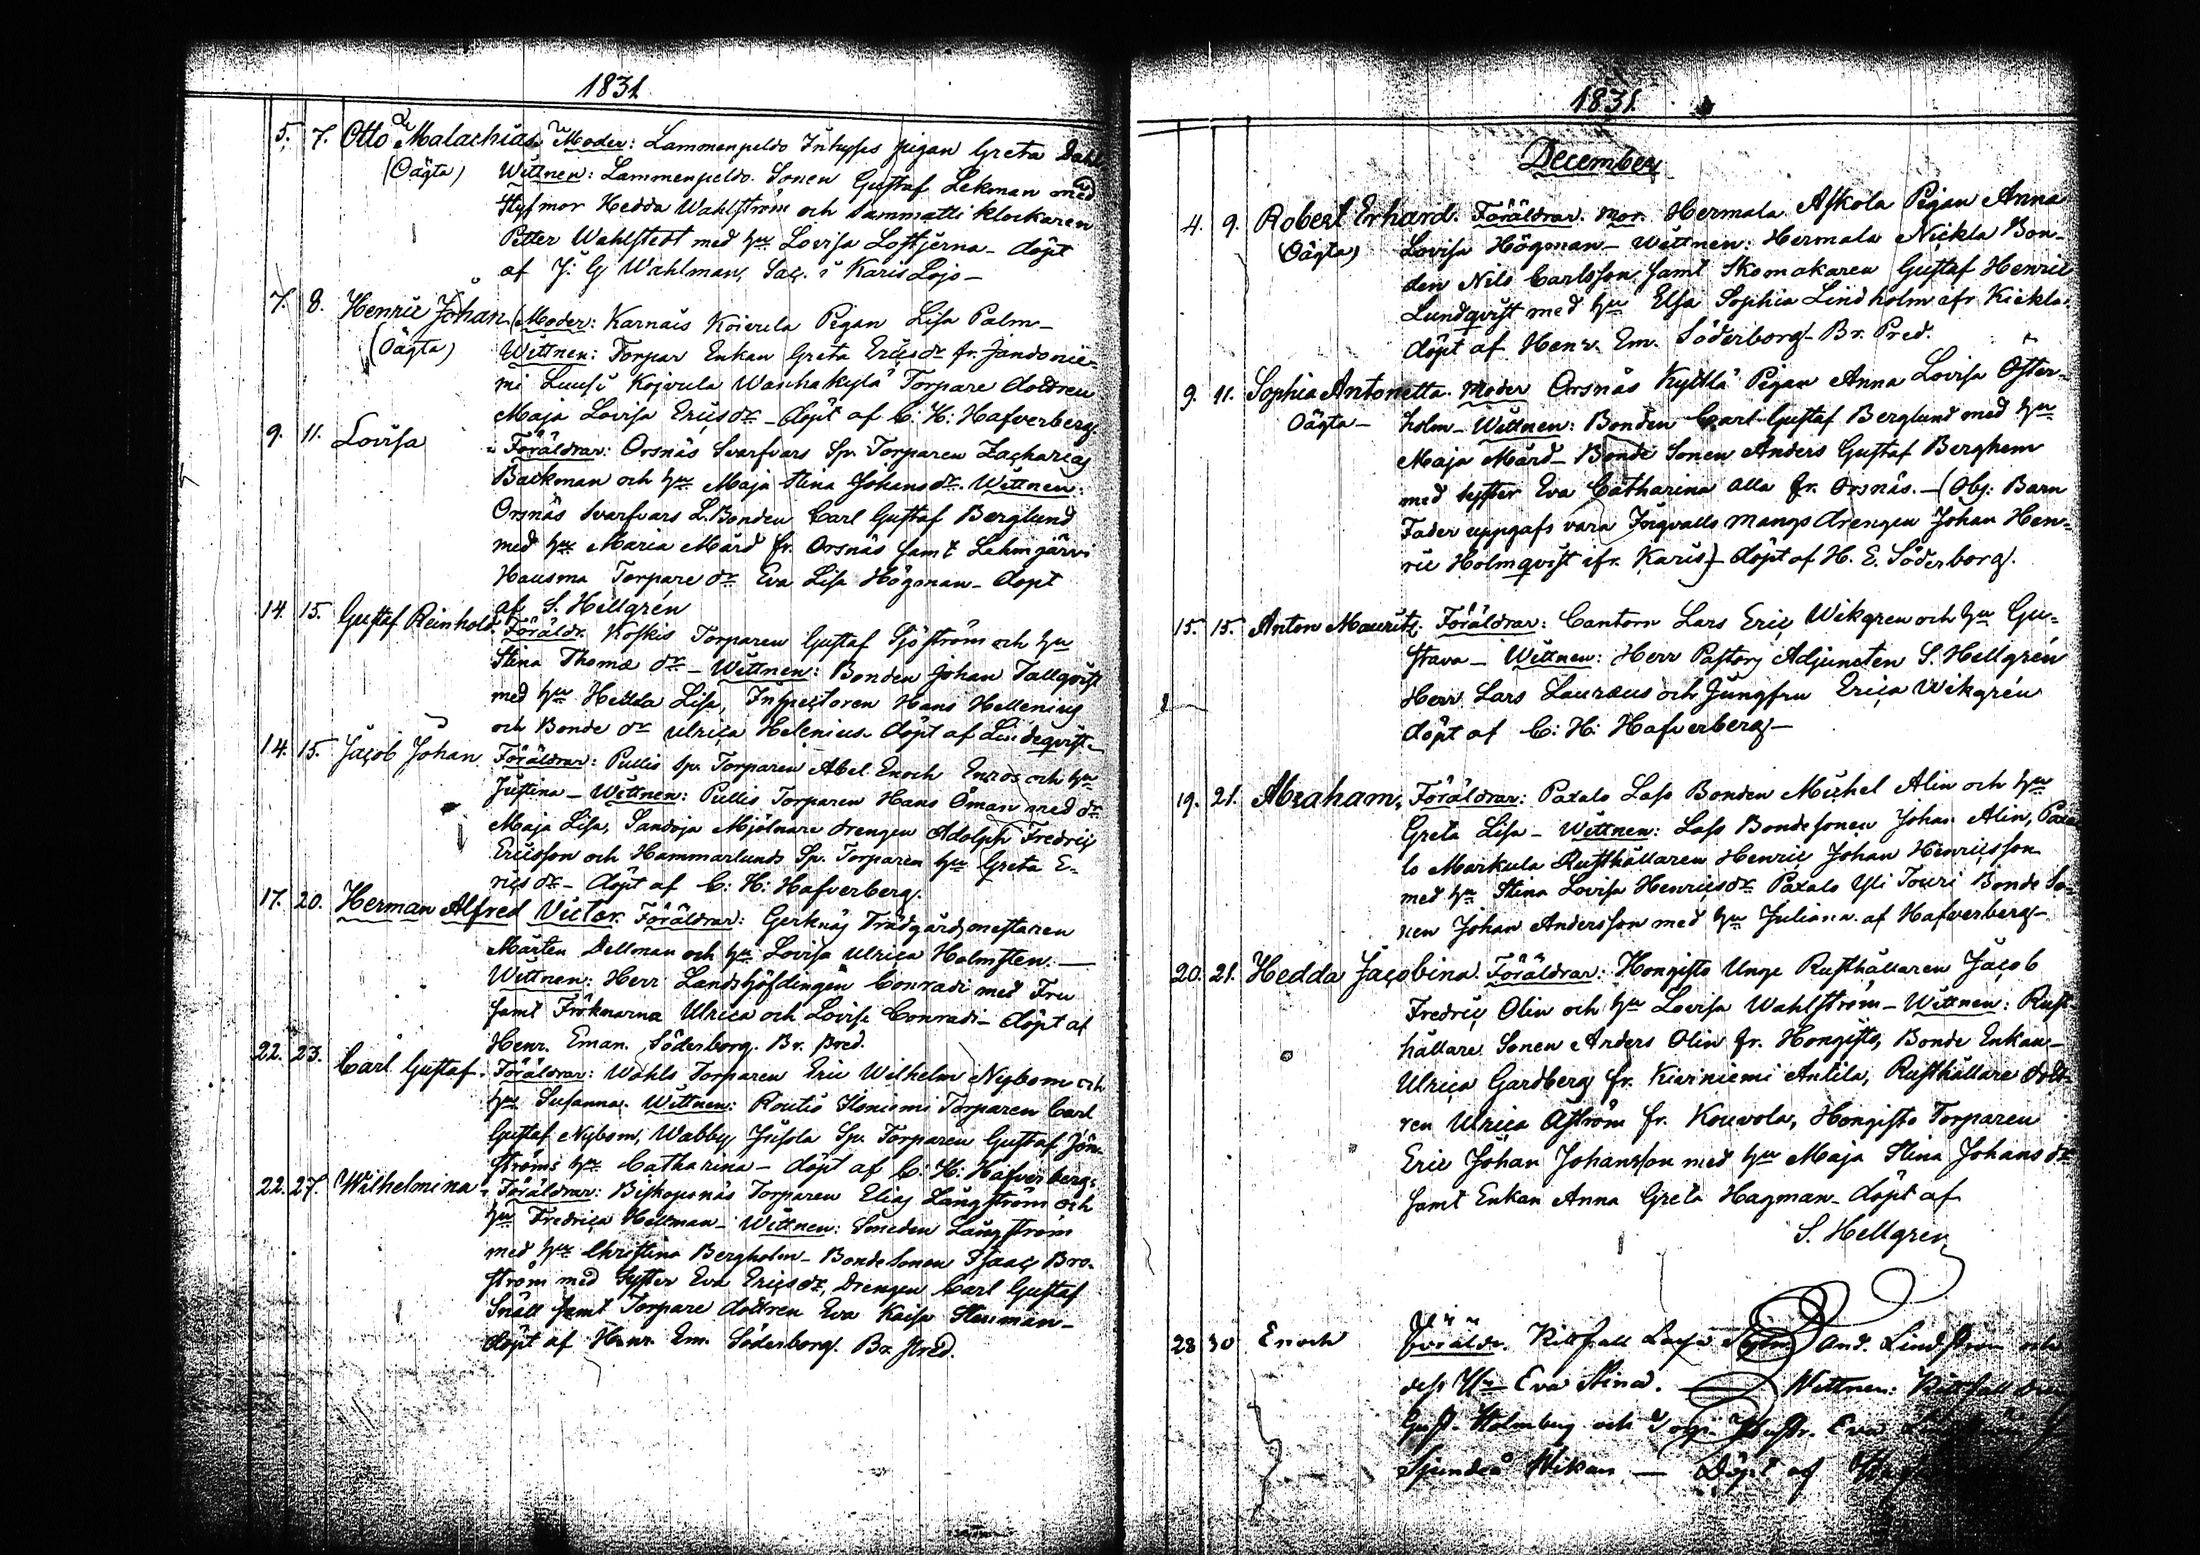 1831.
5. 7. Otto Malachias. Moder: Lammenpeldo Inhyses pigan Greta Dahl
(Oägta) Wittnen: Lammenpeldo Sonen Gustaf Lekman med
Styfmor Hedda Wahlström och Sammatti klockaren
Petter Wahlstedt med hu Lovisa Loftjerna – döpt
af J: G Wahlman, Sac. i Karis Lojo –
7. 8. Henric Johan Moder: Karnais Koierula Pigan Lisa Palm –
(Oägta) Wittnen: Torpar Enkan Greta Ericsdr fr. Jandonie-
mi Kojvula Torpare dottren
Maja Lovisa Ericsdr – döpt af C: H: Hafverberg.
9. 11. Lovisa Föräldrar: Orsnäs Svarfvars Sp. Torparen Zacharias
Backman och hu Maja Stina Johansdr. Wittnen:
Orsnäs Svarfvars L. Bonden Carl Gustaf Berglund
med hu Maria Mård fr. Orsnäs samt Lehmijärvi
Hausma Torpare dr Eva Lisa Högman – döpt
af S. Hellgrén
14. 15. Gustaf Reinhold. Föräldr. Koskis Torparen Gustaf Sjöström och hu
Stina Thomæ dr – Wittnen: Bonden Johan Tallqvist
med hu Hedda Lisa, Inspectoren Hans Hellenius
och Bonde dr Ulrica Helenius döpt af Lindeqvist –
14. 15. Jacob Johan Föräldrar: Pullis Sp. Torparen Abel Enoch Enros och hu
Justina – Wittnen: Pullis Torparen Hans Öman med dr
Maja Lisa, Sandoja Mjölnare drengen Adolph Fredric
Ericsson och Hammarlunds Sp. Torparen hu Greta E-
ricsdr – döpt af C: H: Hafverberg.
17. 20. Herman Alfred Victor. Föräldrar: Gerknäs Trädgårdsmestaren
Mårten Dellman och hu Lovisa Ulrica Holmsten. —
Wittnen: Herr Landshöfdingen Conradi med Fru
samt Fröknarna Ulrica och Lovisa Conradi – döpt af
Henr. Eman. Söderborg. Br. Pred.
22. 23. Carl Gustaf. Föräldrar: Wohls Torparen Eric Wilhelm Nybom och
hu Susanna. Wittnen: Routio Torparen Carl
Gustaf Nybom, Wabby Jusola Sp. Torparen Gustaf Jön-
ströms hu Catharina – döpt af C: H: Hafverberg.
22. 27. Wilhelmina Föräldrar: Biskopsnäs Torparen Elias Långström och
hu Fredrica Hellman – Wittnen: Smeden Långström
med hu Christina Bergholm – Bonde Sonen Isaac Bro-
ström med Syster Eva Ericsdr, Drengen Carl Gustaf
Snäll samt Torpare dottren Eva Kaisa Stenman –
döpt af Henr. Em. Söderborg. Br. Pred.
1831.
December
4. 9. Robert Erhard. Föräldrar. Mor. Hermala Askola Pigan Anna
(Oägta) Lovisa Högman – Wittnen: Hermala Nickla Bon-
den Nils Carlsson, samt Skomakaren Gustaf Henric
Lundqvist med hu Elsa Sophia Lindholm afr Kickla.
döpt af Henr. Em. Söderborg – Br. Pred.
9. 11. Sophia Antonetta. Moder Orsnäs Kyttlä Pigan Anna Lovisa Öster-
Oägta – holm – Wittnen: Bonden Carl Gustaf Berglund med hu
Maja Mård – Bonde Sonen Anders Gustaf Berghem
med syster Eva Catharina alla fr. Orsnäs. – (Obs: Barn
Fader uppgafs vara Ingvalls Mangs drengen Johan Hen-
ric Holmqvist ifr. Karis) – döpt af H. E. Söderborg.
15. 15. Anton Mauritz. Föräldrar: Cantorn Lars Eric Wikgren och hu Gu-
stava – Wittnen: Herr Pastors Adjuncten S. Hellgrén
Herr Lars Lauræus och Jungfru Erica Wikgrén
döpt af C: H: Hafverberg –
19. 21. Abraham, Föräldrar: Paxalo Lass Bonden Michel Alin och hu
Greta Lisa – Wittnen: Lass Bondesonen Johan Alin, Paxa
lo Markula Rusthållaren Henric Johan Henricsson
med hu Stina Lovisa Henricsdr Paxalo Yli Jouri Bonde So-
nen Johan Andersson med hu Juliana. af Hafverberg –
20. 21. Hedda Jacobina. Föräldrar: Hongisto Unge Rusthållaren Jacob
Fredric Olin och hu Lovisa Wahlström – Wittnen: Rust-
hållare Sonen Anders Olin fr. Hongisto, Bonde Enkan –
Ulrica Gardberg fr. Kiviniemi Antila, Rusthållare dott-
ren Ulrica Aström fr. Kouvola, Hongisto Torparen
Eric Johan Johansson med hu Maja Stina Johansdr
samt Enkan Anna Greta Hagman – döpt af
S. Hellgren
28 30 Enoch Föräldr. And. Lindström och
dess Hu Eva Stina. — Wittnen:
Gust. Holmberg och Eva
Sjundeå Wikan — Döpt af